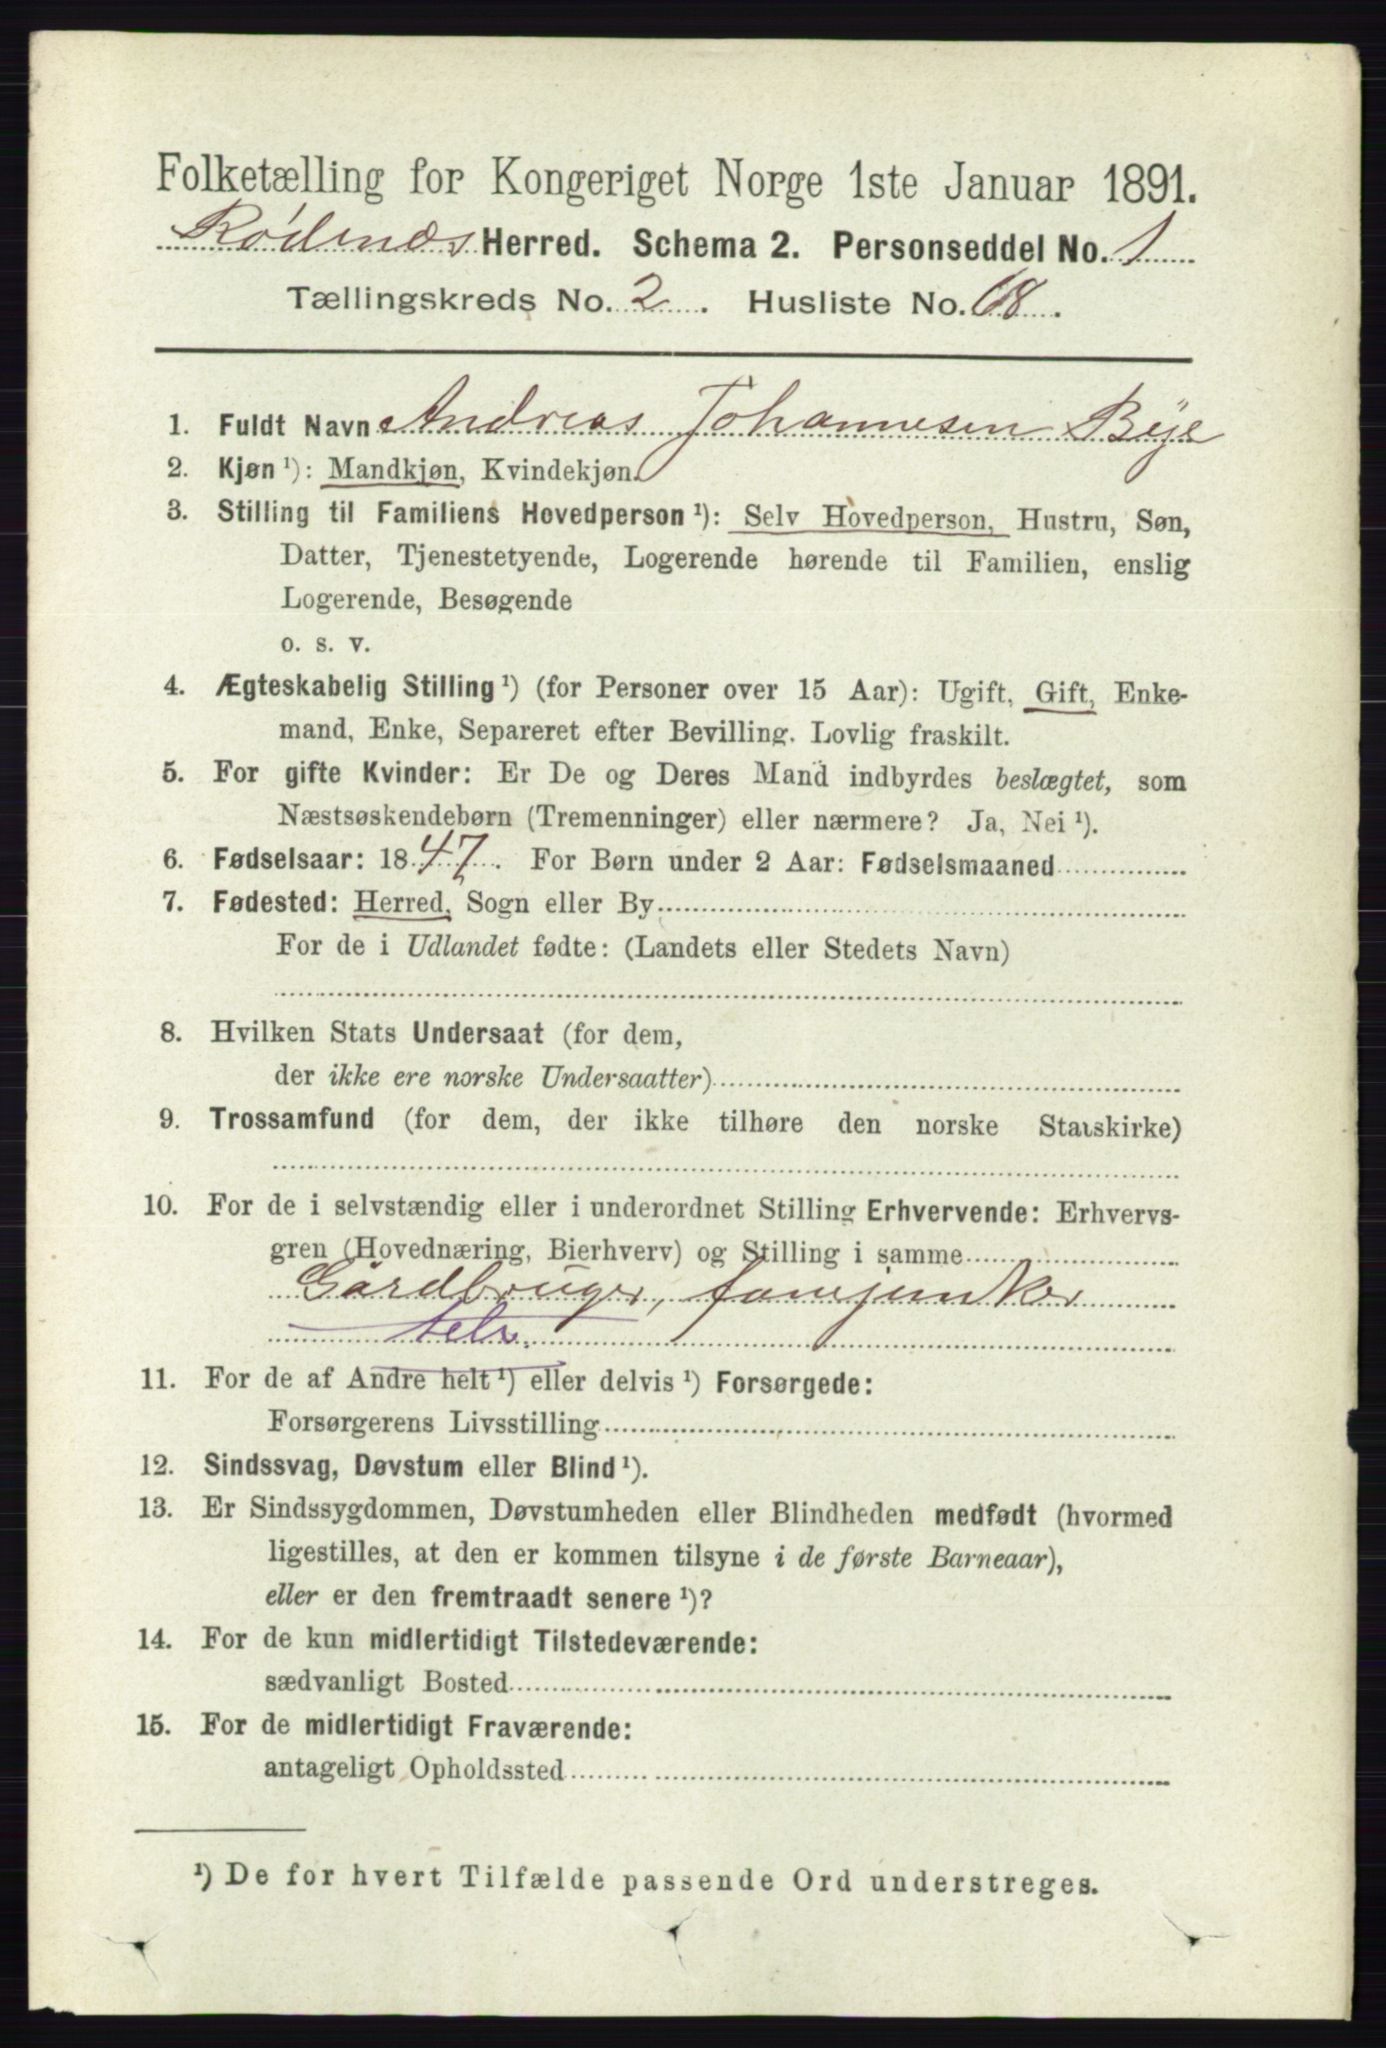 Folketælling for Kongeriget Norge 1ste Januar 1891.
Rødenæs Herred. Schema 2. Personseddel No. 1
Tællingskreds No. 2. Husliste No. 68.
1. Fuldt Navn Andreas Johannesen Bye
2. Kjøn ¹): Mandkjøn, Kvindekjøn.
3. Stilling til Familiens Hovedperson ¹): Selv Hovedperson, Hustru, Søn,
Datter, Tjenestetyende, Logerende hørende til Familien, enslig
Logerende, Besøgende
o. s. v.
4. Ægteskabelig Stilling ¹) (for Personer over 15 Aar): Ugift, Gift, Enke-
mand, Enke, Separeret efter Bevilling. Lovlig fraskilt.
5. For gifte Kvinder: Er De og Deres Mand indbyrdes beslægtet, som
Næstsøskendebørn (Tremenninger) eller nærmere? Ja, Nei ¹).
6. Fødselsaar: 1847. For Børn under 2 Aar: Fødselsmaaned
7. Fødested: Herred, Sogn eller By
For de i Udlandet fødte: (Landets eller Stedets Navn)
8. Hvilken Stats Undersaat (for dem,
der ikke ere norske Undersaatter)
9. Trossamfund (for dem, der ikke tilhøre den norske Statskirke)
10. For de i selvstændig eller i underordnet Stilling Erhvervende: Erhvervs-
gren (Hovednæring, Bierhverv) og Stilling i samme
Gårdbruger,
selv.
11. For de af Andre helt ¹) eller delvis ¹) Forsørgede:
Forsørgerens Livsstilling
12. Sindssvag, Døvstum eller Blind ¹).
13. Er Sindssygdommen, Døvstumheden eller Blindheden medfødt (hvormed
ligestilles, at den er kommen tilsyne i de første Barneaar),
eller er den fremtraadt senere ¹)?
14. For de kun midlertidigt Tilstedeværende:
sædvanligt Bosted
15. For de midlertidigt Fraværende:
antageligt Opholdssted
¹) De for hvert Tilfælde passende Ord understreges.